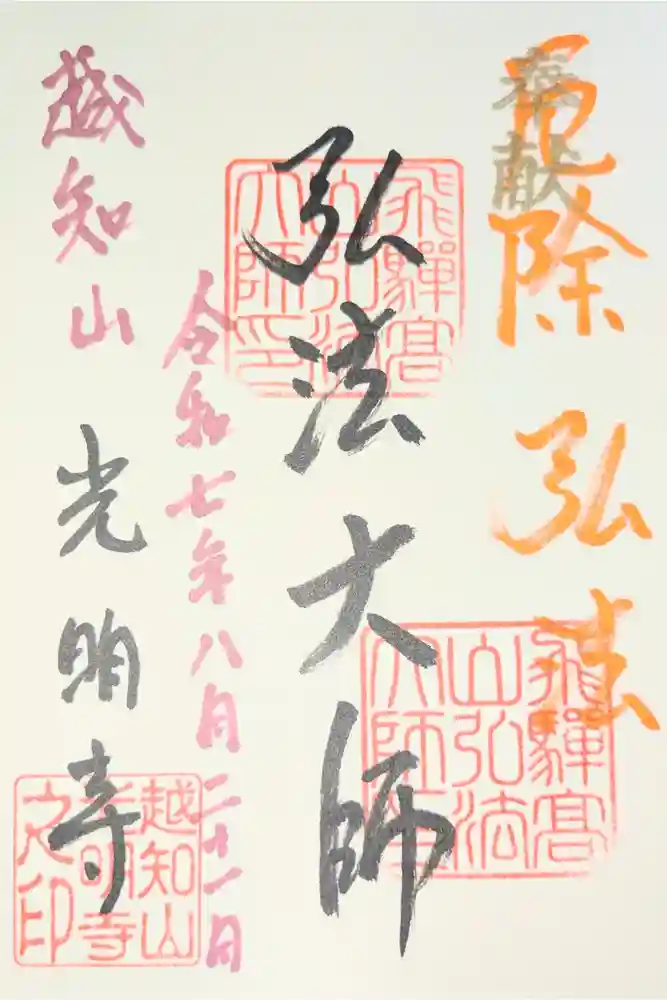 奉献
厄除 弘法
弘法大師
飛騨高
山弘法
大師印
飛騨高
山弘法
大師印
令和七年八月二十一日
越知山 光明寺
越知山
光明寺
之印